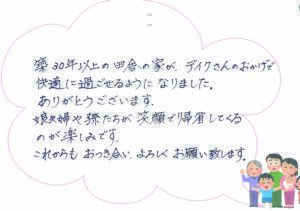 築30年以上の田舎の家が、デイクさんのおかげで
快適に過ごせるように なりました。
ありがとうございます。
娘夫婦や孫たちが 笑顔で帰省してくる
のが楽しみです。
これからも おつき合い よろしく お願い致します。